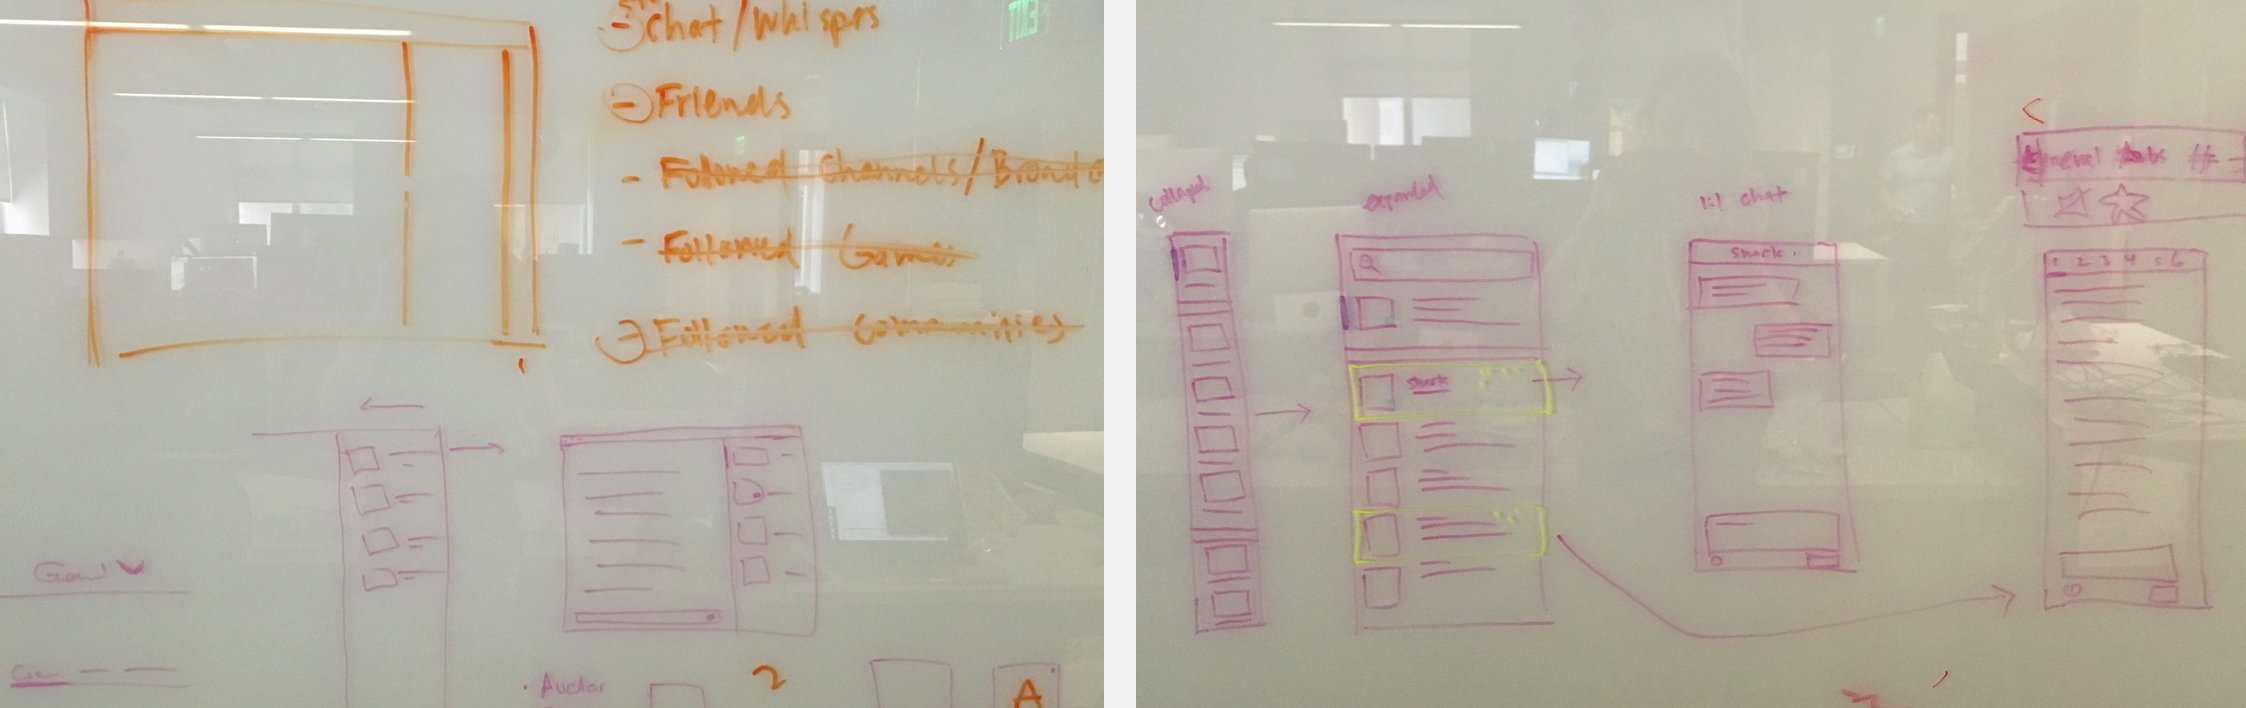 - Chat/Whispers
- Friends
- Followed Channels/Brands
- Followed Games
- Followed Communities
Avatar
2
A
EXIT
collapsed
expanded
shark
1:1 chat
shark
General tabs #
1 2 3 4 5 6